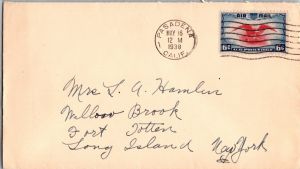 PASADENA
MAY 16
12 M
1938
CALIF.
AIR MAIL
6¢ 6¢
Mrs L. A. Hamlin
Willow Brook
Fort Totten
Long Island New York